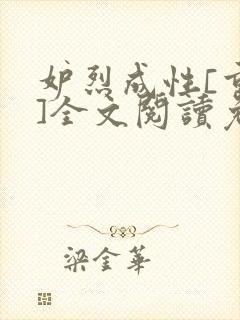 妒烈成性[重
]全文閱讀
梁金華